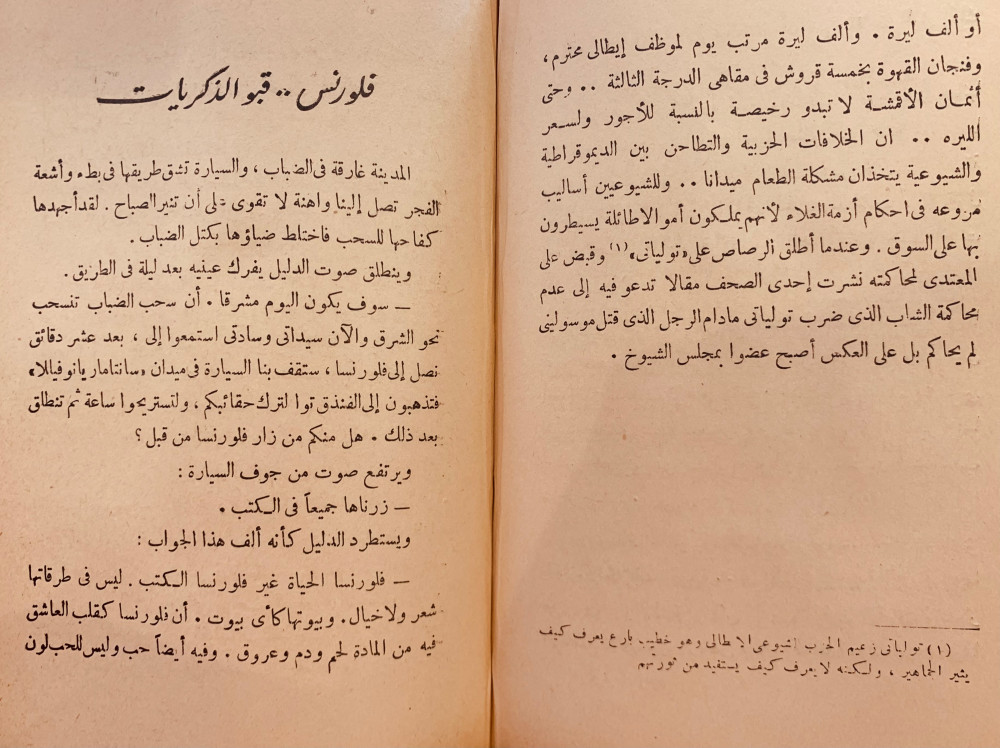 أو ألف ليرة . وألف ليرة مرتب يوم لموظف إيطالى محترم ،
وفنجان القهوة بخمسة قروش فى مقاهى الدرجة الثالثة .. وحتى
أثمان الأقمشة لا تبدو رخيصة بالنسبة للأجور ولسعر
الليره .. ان الخلافات الحزبية والتطاحن بين الديموقراطية
والشيوعية يتخذان مشكلة الطعام ميدانا .. وللشيوعيين أساليب
مروعه فى احكام أزمة الغلاء لأنهم يملكون أموالا طائلة يسيطرون
بها على السوق . وعندما أطلق الرصاص على «تولياتى» (١) وقبض على
المعتدى لمحاكمته نشرت إحدى الصحف مقالا تدعو فيه إلى عدم
محاكمة الشاب الذى ضرب تولياتى مادام الرجل الذى قتل موسولينى
لم يحاكم بل على العكس أصبح عضوا بمجلس الشيوخ .
(١) تولياتى زعيم الحزب الشيوعى الايطالى وهو خطيب بارع يعرف كيف
يثير الجماهير ، ولكنه لا يعرف كيف يستفيد من ثورتهم
فلورنس .. قبو الذكريات
المدينة غارقة فى الضباب ، والسيارة تشق طريقها فى بطء وأشعة
الفجر تصل إلينا واهنة لا تقوى على أن تنير الصباح . لقد أجهدها
كفاحها للسحب فاختاط ضياؤها بكتل الضباب .
وينطلق صوت الدليل يفرك عينيه بعد ليلة فى الطريق .
— سوف يكون اليوم مشرقا . أن سحب الضباب تنسحب
نحو الشرق والآن سيداتى وسادتى استمعوا إلى ، بعد عشر دقائق
نصل إلى فلورنسا ، ستقف بنا السيارة فى ميدان «سانتامار يانوفيللا»
فتذهبون إلى الفندق توا لترك حقائبكم ، ولتستريحوا ساعة ثم تنطلق
بعد ذلك . هل منكم من زار فلورنسا من قبل ؟
ويرتفع صوت من جوف السيارة :
— زرناها جميعاً فى الكتب .
ويستطرد الدليل كأنه ألف هذا الجواب :
— فلورنسا الحياة غير فلورنسا الكتب . ليس فى طرقاتها
شعر ولا خيال. وبيوتها كأى بيوت . أن فلورنسا كقلب العاشق
فيه من المادة لحم ودم وعروق . وفيه أيضاً حب وليس للحب لون